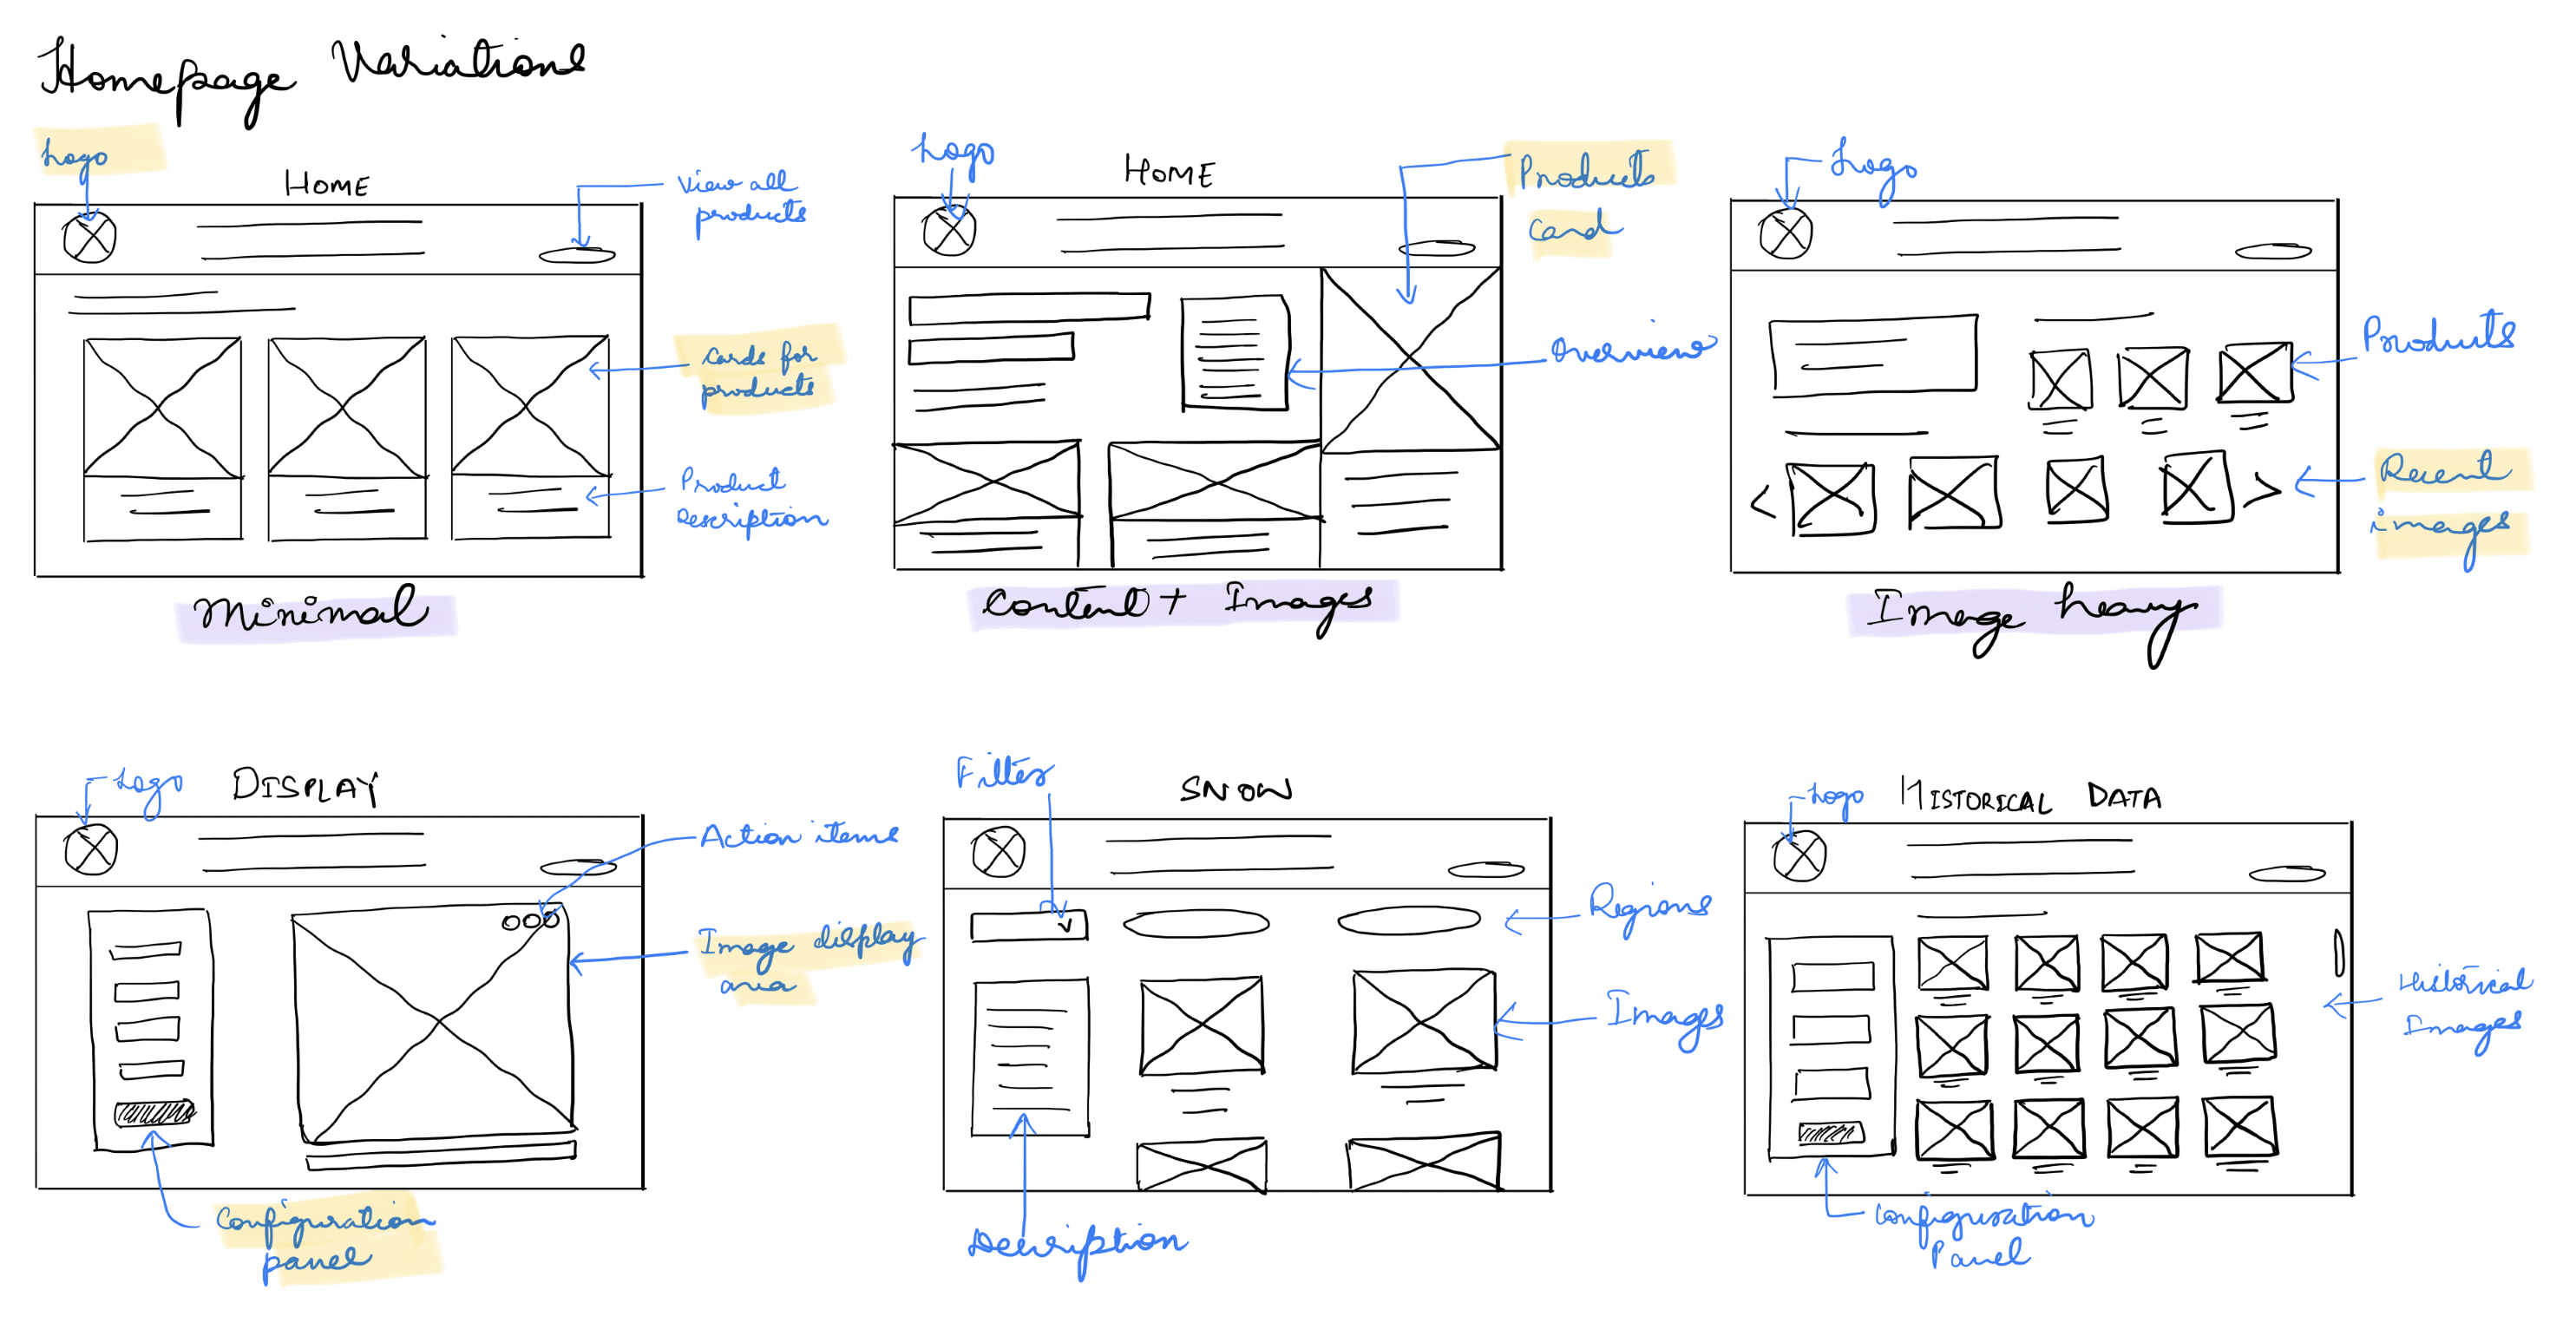 Homepage Variations
Logo
HOME
View all
products
Cards for
products
Product
Description
Minimal
Logo
HOME
Products
Card
Overview
Content + Images
Logo
Products
Recent
images
Image heavy
Logo
DISPLAY
Action items
Image display
area
Configuration
panel
Filter
SNOW
Regions
Images
Description
Logo
HISTORICAL DATA
Historical
Images
Configuration
Panel